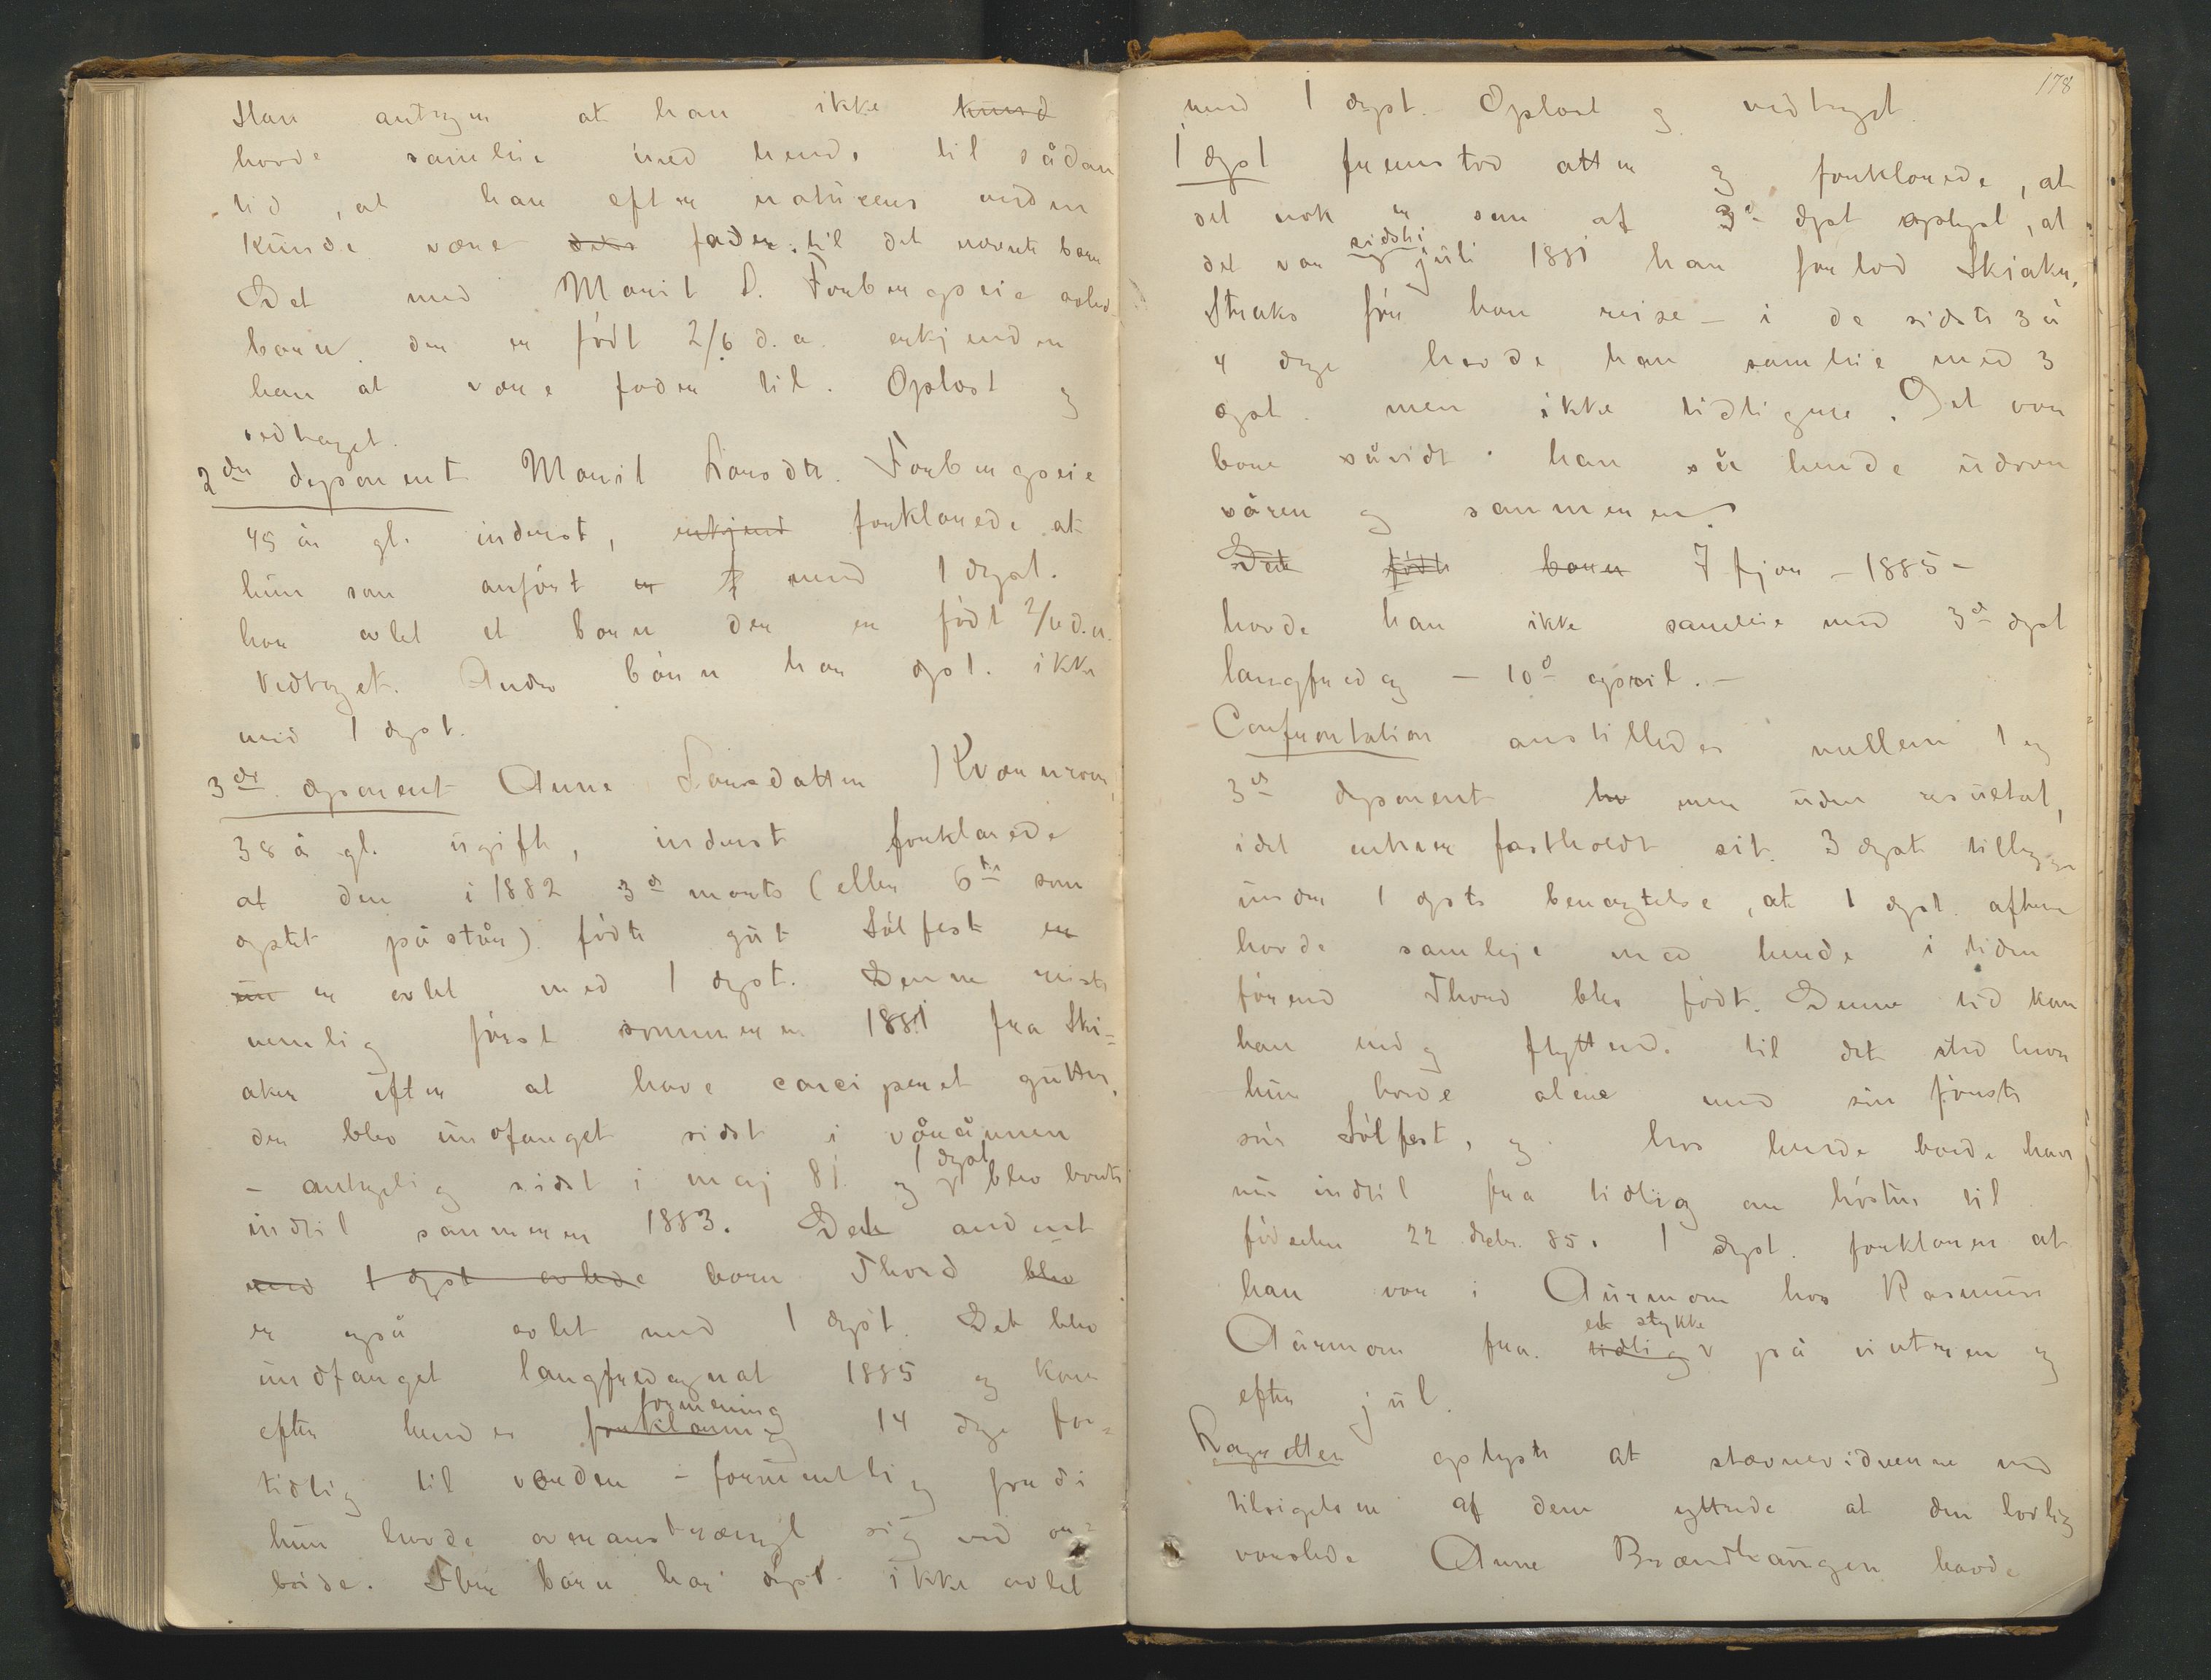 Han antager at han ikke kund
havde samleie med hende til sådan
tid, at han efter naturens orden
kunde være dets fader til det nævnte barn
Det med Marit L. Forbergseie avlede
barn der er født 2/6 d.a. erkjender
han at være fader til. Oplæst og
vedtaget.
2den deponent Marit Larsdtr. Forbergseie
45 år gl. inderst, erkjend forklarede at
hun som anført er med 1 dept.
har avlet et barn der er født 2/6 d.a.
Vedtaget. Andre børn har dept. ikke
med 1 dept.
3die deponent Anne Larsdatter Kvernrom,
38 år gl. ugift, inderst forklarede
at den i 1882 3die marts (eller 6te som
deptet påstår) fødte gut Sølfest er
un er avlet med 1 dept. Denne reiste
nemlig først sommeren 1881 fra Ski-
aker efter at have conciperet gutten,
der blev undfanget sidst i våronnen
- antagelig sidst i maj 81 og 1 dept blev borte
indtil sommeren 1883. Det andet
med 1 dept avlede barn Thord blev
er også avlet med 1 dept. Det blev
undfanget langfredagnat 1885 og kom
efter hendes forklaring formening 14 dage for-
tidlig til verden - formentlig fordi
hun havde overanstrængt sig ved ar-
beide. Flere børn har dept. ikke avlet
178
med 1 dept. Oplæst og vedtaget.
1 dept fremstod atter og forklarede, at
det nok er som af 3die dept oplyst, at
det var sidst i juli 1881 han forlod Skiaker,
Straks før han reise - i de sidste 3 à
4 dage havde han samleie med 3
dept. men ikke tidligere. Det var
bare såvidt han så hende udover
våren og sommeren.
Det født barn I fjor - 1885 -
havde han ikke samleie med 3die dept
langfredag - 10de april. -
Confrontation anstilledes mellem 1 og
3die deponent hv men uden resultat,
idet enhver fastholdt sit. 3 dept tillægger
under 1 depts benægtelse, at 1 dept. oftere
havde samleje med hende i tiden
førend Thord blev født. Denne tid kom
han endog flyttende til det sted hvor
hun boede alene med sin første
søn Sølfest, og hos hende boede han
nu indtil fra tidlig om høsten til
fødselen 22 decbr. 85. 1 dept. forklarer at
han var i Aurmom hos Rasmus
Aurmom fra tidlig et stykke på vinteren og
efter jul.
Lagretten oplyste at stævnevidnerne ved
tilsigelsen af dem ytrede at den lovlig
varslede Anne Brændhaugen havde